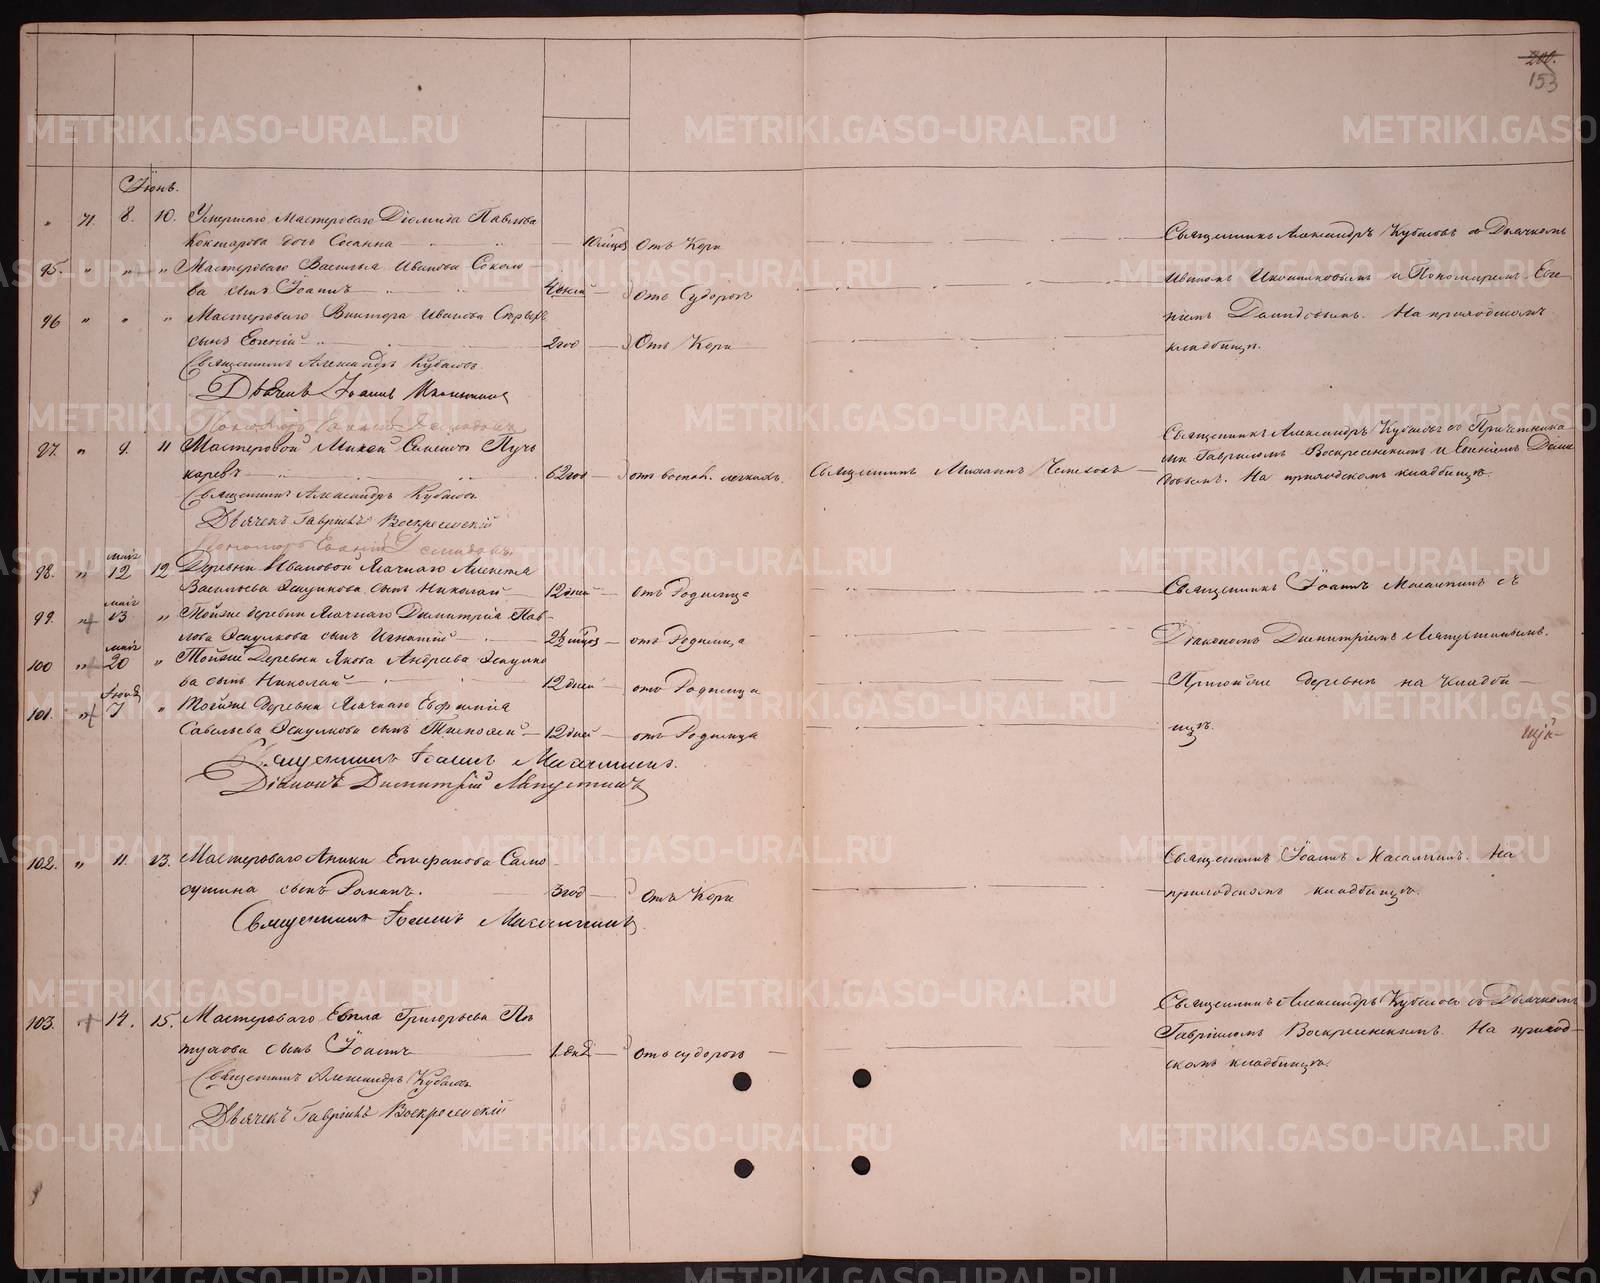 200.
153
Іюнь.
" 71. 8. 10. Умершаго Мастероваго Діомида Павлова
Кокшарова дочь Сосанна — 10 мцов Отъ Кори
Священникъ Александръ Кубасовъ съ Дьячкомъ
95. " " " Мастероваго Василья Иванова Соколо
ва сынъ Іоаннъ — 4 дней — отъ Судорогъ
Иваномъ Иконниковымъ и Пономаремъ Евге
96 " " " Мастероваго Виктора Иванова
ніемъ Давидовымъ. На приходскомъ
сынъ Евгеній " 2 год — Отъ Кори
кладбищѣ.
Священникъ Александръ Кубасовъ
Дьячекъ Іоаннъ
Пономарь Евгеній
97. " 9. 11 Мастеровой
каревъ — 62 год — от воспал. легкихъ. Священникъ Михаилъ
Священникъ Александръ Кубасовъ съ Причетника
ми Гавріиломъ Воскресенскимъ и Евгеніемъ Дави
довымъ. На приходскомъ кладбищѣ.
Священникъ Александръ Кубасовъ
Дьячекъ Гавріилъ Воскресенскій
Пономарь Евгеній
98. " маія 12 12 Деревни Ивановой
Васильева сынъ Николай — 12 дней — отъ Родимца
Священникъ Іоаннъ Масалкинъ съ
99. " маія 13 " Тойже деревни Димитрія Пав-
лова сынъ Игнатій — 2½ мцов — отъ Родимца
Діакономъ Димитріемъ Ляпустинымъ.
100 " маія 20 " Тойже Деревни Якова Андреева
ва сынъ Николай — 12 дней — отъ Родимца
При той же деревнѣ на кладби —
101. " Іюня 7 " Тойже Деревни
Савельева сынъ Тимофей — 12 дней — отъ Родимца
щѣ.
Священникъ Іоаннъ Масалкинъ.
Діаконъ Димитрій Ляпустинъ
102. " 11. 13. Мастероваго Аники Епифанова Само
сушина сынъ Романъ. 3 год — Отъ Кори
Священникъ Іоаннъ Масалкинъ. На
приходскомъ кладбищѣ.
Священникъ Іоаннъ Масалкинъ
103. 14. 15. Мастероваго Евпла Григорьева Пѣ
тухова сынъ Іоаннъ — 1. дня — Отъ судорогъ —
Священникъ Александръ Кубасовъ съ Дьячкомъ
Гавріиломъ Воскресенскимъ. На приход-
скомъ кладбищѣ.
Священникъ Александръ Кубасовъ
Дьячекъ Гавріилъ Воскресенскій
METRIKI.GASO-URAL.RU